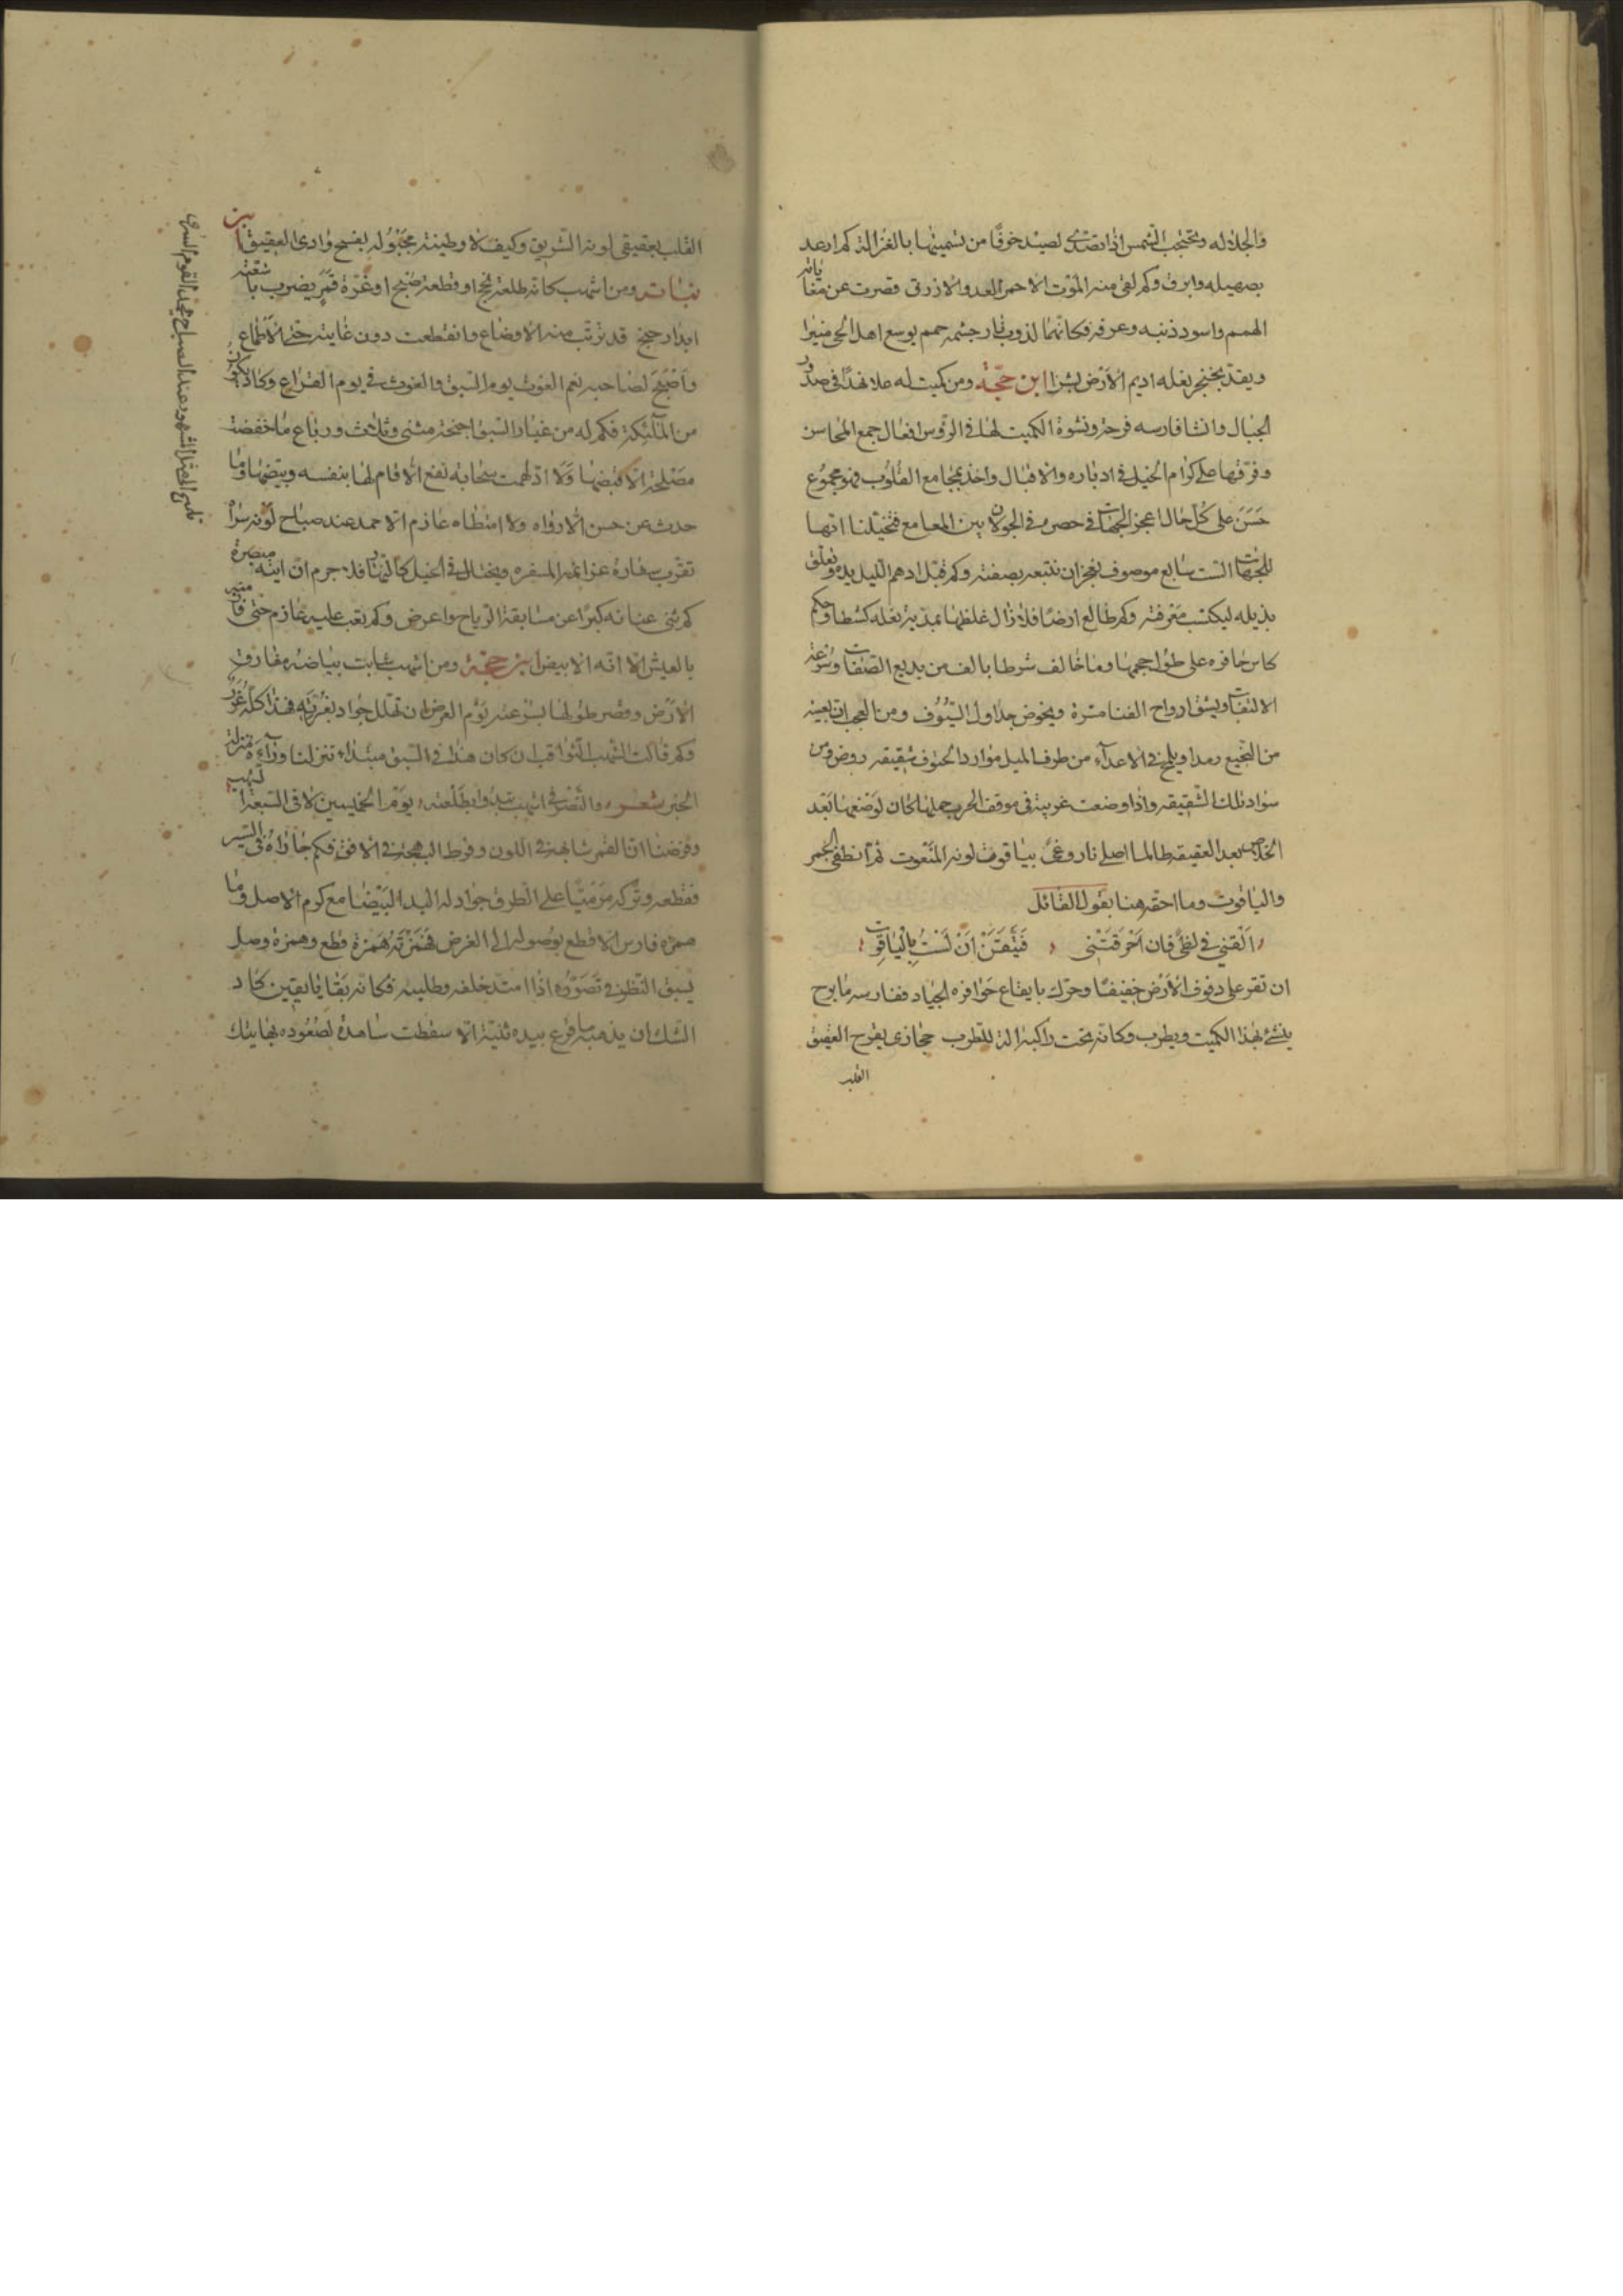 والجلاله وتحتجب الشمس اذا تصدى لصيد خوفا من تسميتها بالغزالة كم ارعد
بصهيله وابرق وكم لقى منه الموت الاحمر العدو الازرق قصرت عن مغاياته
الهمم واسود ذنبه وعرفه فكانهما لذوب نار جسمه حمم يوسع اهل الحى
ويقد بخنجر نعله اديم الارض بشرا ابن حجة ومن كميت له علا نهدا فى صدور
الجبال وانشا فارسه فرحة ونشوة الكميت لها فى الرؤس افعال جمع المحاسن
وفرقها على كرام الخيل فى ادباره والاقبال واخذ بمجامع القلوب فهو مجموع
حسن على كل حال اعجز الجهات فى حصره فى الجولان بين المعامع فتخيلنا انها
للجهات الست سابع موصوف نعجز ان نتبعه بصفته وكم قبل ادهم الليل يده وتعلق
بذيله ليكتسب معرفته وكم طالع ارضا فلا زال غلظها بمذية نعله كشطا وحكم
كاس حافره على طول حجمها وما خالف شرطا بالف من بديع الصفات وسرعة
الالتفات ويشق ارواح القنا مسرة ويخوض جداول السيوف ومن العجب ان بعينه
من النجيع رمدا ويلج فى الاعداء من طرف الميل موارد الحتوف شقيقه روض ومن
سواد تلك الشقيقه واذا وضعت غريبة فى موقف الحرب حملها كان لوضعها بعد
الخلاص بعد العقيقه طالما اصلى نار وغى بياقوت لونه المنعوت ثم انطفى الجمر
والياقوت وما احقه هنا بقول القائل
القني في لظى فان احرقتني فتيقن ان لست بالياقوت
ان نقر على دفوف الارض خفيفا وحرك بايقاع حوافره الجياد ففارسه ما برح
ينشئ بهذا الكميت ويطرب وكانه تحت راكبه الة للطرب حجازى يفرح
القلب
القلب بعقيقى لونه الشريق وكيف لا وطينته مجبولة بفسح وادى العقيق ابن
نباته ومن اشهب كانه طلعة نجم او قطعة صبح او غرة قمر يضرب باشعته
قد ترتب منه الاوضاع وانقطعت دون غايته حتى الاطماع
واصبح لصاحبه نعم العون يوم السبق والغوث فى يوم القراع وكاد يكون
من الملائكة فكم له من غبار السبق اجنحة مثنى وثلاث ورباع ما خفضت
مصلحة الا قبضها ولا ادلهمت سحابة نقع الا قام لها بنفسه وبيضها وما
حدث عن حسن الا رواه ولا امتطاه عازم الا حمد عند صباح لونه سراه
تقرب سفارة عزائمه المسفره ويختال فى الخيل كالنهار فلا جرم ان ايته مبصرة
كم ثنى عنانه كبرا عن مسابقة الرياح واعرض وكم تعب عليه عازم حتى فاز منه
بالعيش الا انه الابيض ابن حجة ومن اشهب شابت ببياضه مفارق
الارض وقصر طولها بسرعته يوم العرض ان تهلل جواد بغرته فهذا كله غرر
وكم قالت الشهب الثواقب ان كان هذا فى السبق مبتداء تنزلنا وراءه منزلة
الخبر شعر والنصر فى اشهب تبدو طلعته يوم الخميسين لا فى السبعة الشهب
وفرضنا ان القمر شابهه فى اللون وفرط البهجة فى الافق فكم جاراه فى السير
فقطعه وتركه مرميا على الطرق جواد له اليد البيضا مع كرم الاصل وما
همزه فارس الا قطع بوصوله الى الغرض فهمزته همزة قطع وهمزة وصل
يسبق النظر فى تصوره اذا امتد خلفه وطلبه فكانه بقايا يقين كاد
الشك ان يذهبه ما فرع بيده ثنية الا سقطت شاهدة لصعوده نهايتك
عند الصباح يحمد القوم السرى